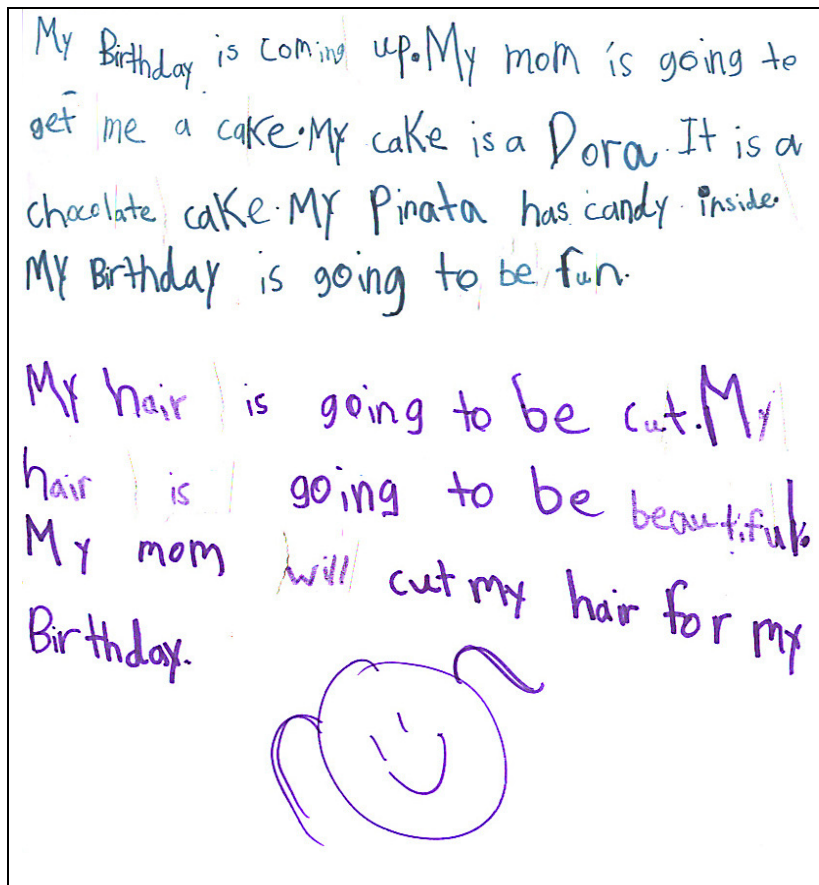 My Birthday is coming up. My mom is going to
get me a cake. My cake is a Dora. It is a
chocolate cake. My Pinata has candy inside.
My Birthday is going to be fun.
My hair is going to be cut. My
hair is going to be beautiful.
My mom will cut my hair for my
Birthday.